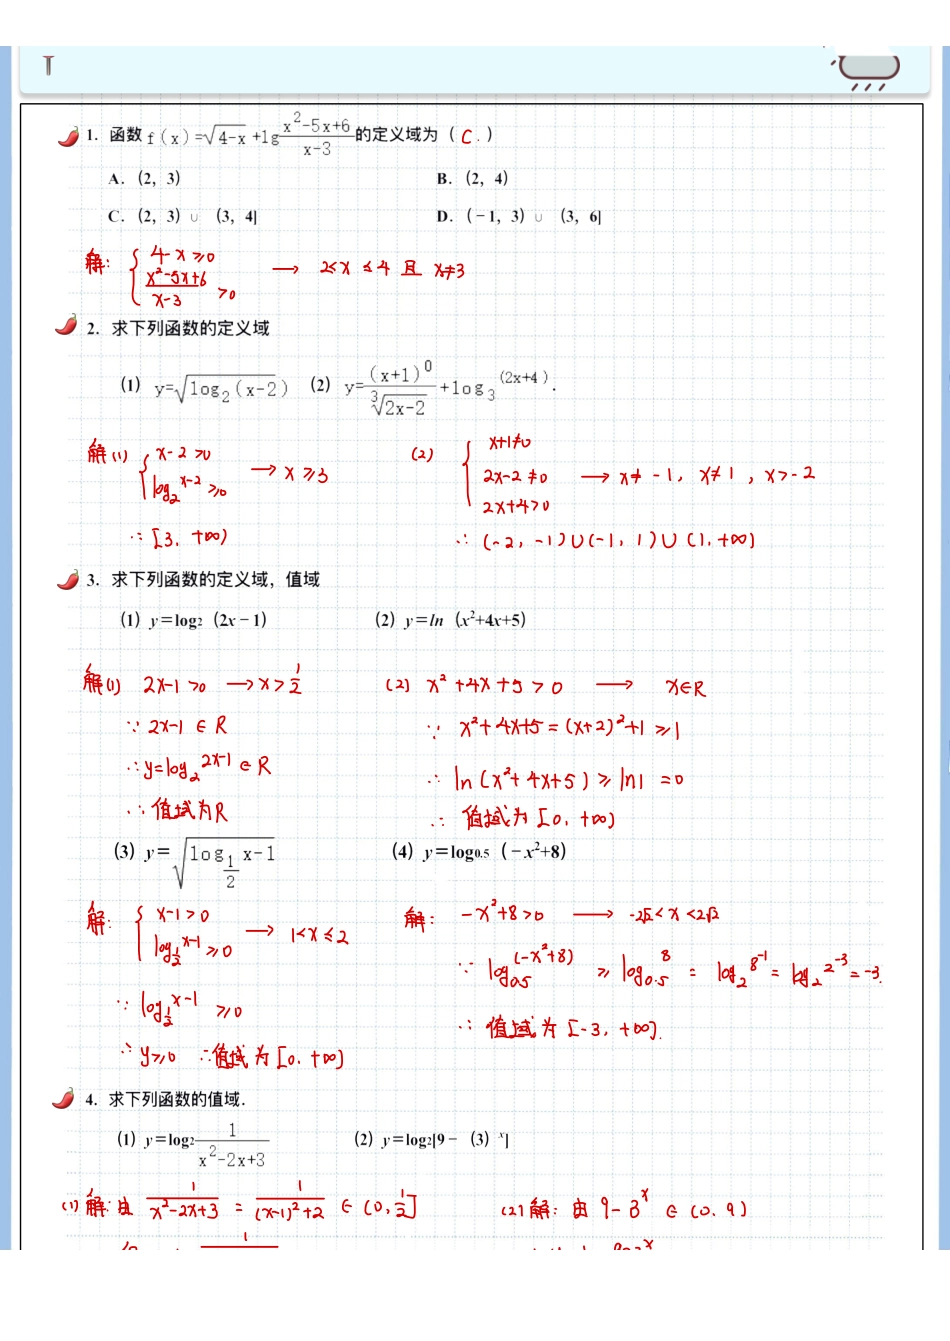 T
1. 函数 f(x)=√(4-x)+lg (x²-5x+6)/(x-3) 的定义域为（ C. ）
A.（2，3） B.（2，4）
C.（2，3）∪（3，4] D.（-1，3）∪（3，6]
解: { 4-x≥0 (x²-5x+6)/(x-3) >0 → 2<x≤4 且 x≠3
2. 求下列函数的定义域
（1）y=√(log₂(x-2)) （2）y=(x+1)⁰/∛(2x-2) +log₃^(2x+4).
解(1) { x-2>0 log₂^(x-2)≥0 → x≥3
∴ [3, +∞)
(2) { x+1≠0 2x-2≠0 2x+4>0 → x≠-1, x≠1, x>-2
∴ (-2, -1)∪(-1, 1)∪(1, +∞)
3. 求下列函数的定义域，值域
（1）y=log₂（2x-1） （2）y=ln（x²+4x+5）
解(1) 2x-1>0 → x>1/2
∵ 2x-1∈R
∴ y=log₂^(2x-1)∈R
∴ 值域为R
(2) x²+4x+5>0 → x∈R
∵ x²+4x+5=(x+2)²+1≥1
∴ ln(x²+4x+5)≥ln1=0
∴ 值域为[0, +∞)
（3）y=√(log_(1/2) x-1) （4）y=log0.5（-x²+8）
解: { x-1>0 log_(1/2)^(x-1)≥0 → 1<x≤2
∵ log_(1/2)^(x-1)≥0
∴ y≥0 ∴值域为[0, +∞)
解: -x²+8>0 → -2√2<x<2√2
∵ log_0.5^(-x²+8)≥log_0.5^8=log₂^(8⁻¹)=log₂^(2⁻³)=-3.
∴ 值域为[-3, +∞).
4. 求下列函数的值域.
（1）y=log₂ 1/(x²-2x+3) （2）y=log₂[9-（3）ˣ]
(1)解:由 1/(x²-2x+3) = 1/((x-1)²+2) ∈(0, 1/2]
(2)解: 由 9-3ˣ∈(0, 9)